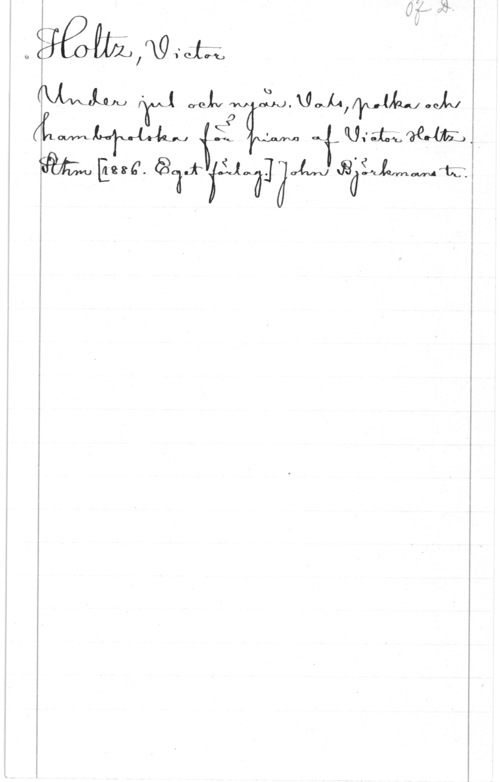 Of. D.
Holtz, Victor
Under jul och nyår. Vals, polka och
hambopolska för piano af Victor Holtz.
Sthm [1886. Eget förlag.] John Björkmans tr.